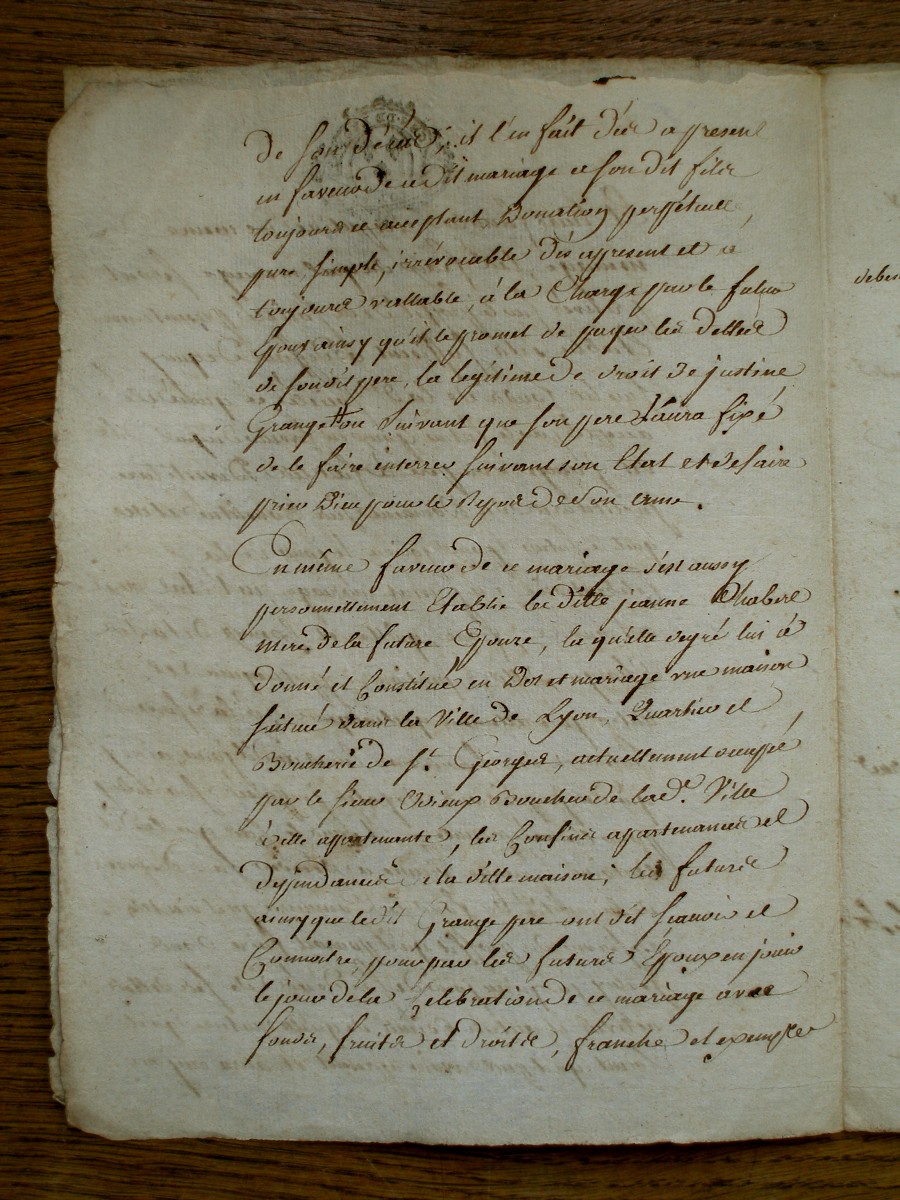 de son décéd, il l'en fait dèz a present
en faveur de cedit mariage ce sondit filz
toujours ce aceptant Donation perpétuelle,
pure simple, irrévocable dès apresent et à
toujours vallable, à la Charge par le futur
Epoux ainsy qu'il le promet de payer les dettes
de sondit pere, la legitime de droit de justine
Grange suivant que son pere l'aura fixé
de le faire enterrer suivant son Etat et de faire
prier Dieu pour le Repos de son ame.
En même faveur de ce mariage s'est aussy
personnellement Etablie la ditte jeanne Chabert
mere de la future Epouze, la qu'elle degré lui à
donné et Constitué en Dot et mariage une maison
située dans la Ville de Lyon, Quartier et
Boucherie de St. Georges, actuellement occuppée
par le sieur Boucher de lad.e Ville
à elle appartenante, les Confins appartenances et
dependances de la ditte maison, les futurs
ainsy que ledit Grange pere ont dit scavoir et
Connoître, pour par les futurs Epoux en jouir
le jour de la Celebration de ce mariage avec
fonds, fruits et droits, franche et exempte